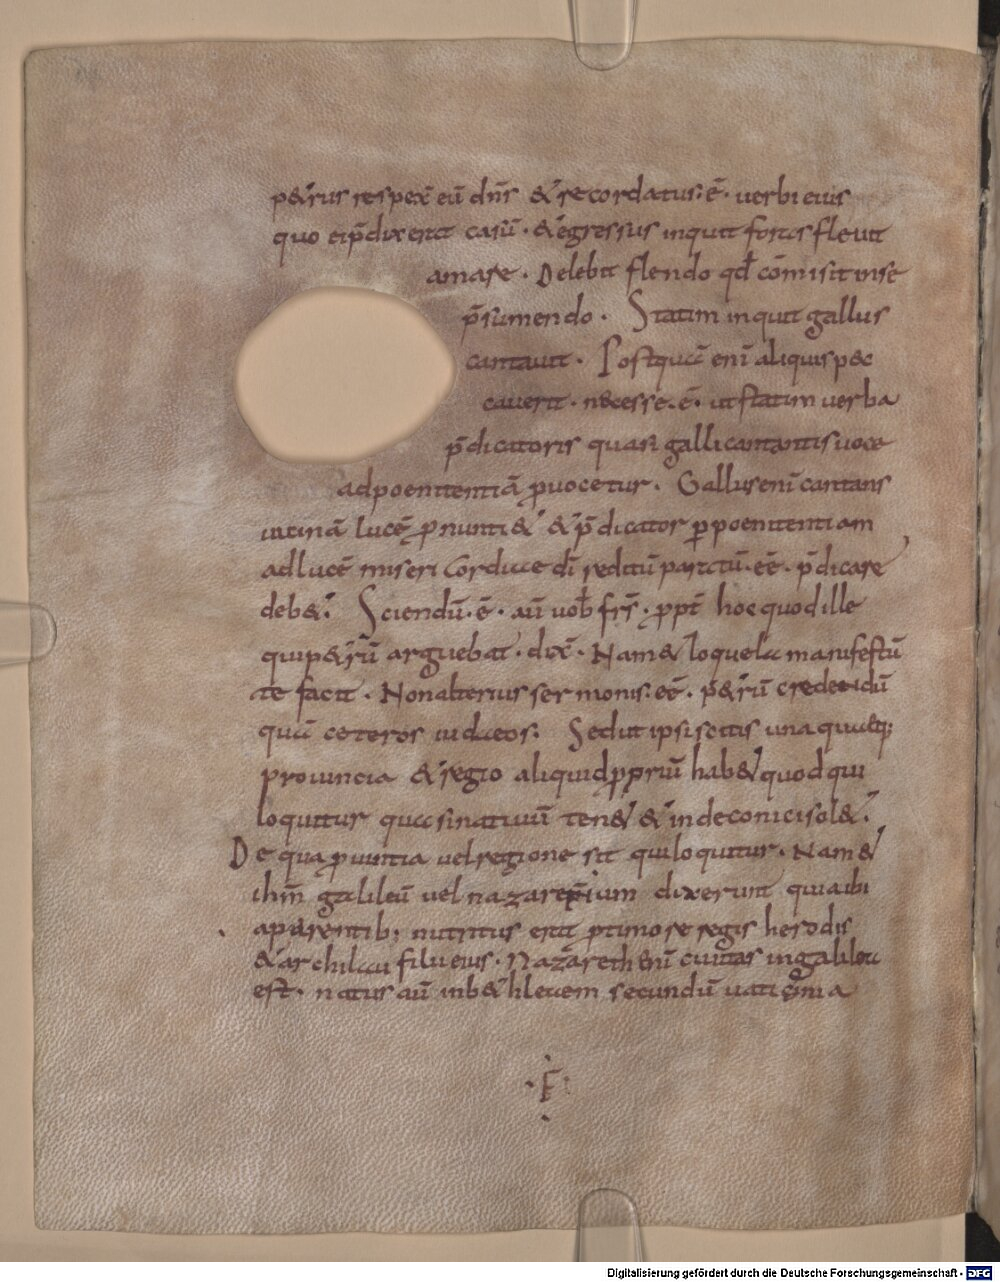 p&rus respex̄ eū dn̄s & recordatus·ē· uerbi eius
quo eip̄dixerat casū· & egressus inquit foras fleuit
amare· Delebit flendo qđ cōmisit inse
p̄sumendo· Statim inquit gallus
cantauit· Postquā enī aliquis pec
cauerit· necesse·ē· ut statim uerba
p̄dicatoris quasi galli cantantis uoce
ad poenitentiā ꝓuocetur· Gallus enī cantans
uicinā lucē ꝓnunti& & p̄dicator ꝑ poenitentiam
ad lucē misericordiae dī reditū patetū·eē· p̄dicare
deb&· Sciendū·ē· aū uob̄ fr̄s· ꝓpt̄ hoc quod ille
qui p&rū arguebat· dix̄· Nam & loquela manifestū
te facit· Non alterius sermonis·eē· p&rū credendū
quā ceteros iudaeos· Sed ut ipsi scitis una quaeq;
prouincia & regio aliquid ꝓpriū hab& quod qui
loquitur quasi natiuū ten& & inde conici sol&·
De qua ꝓuintia uel regione sit qui loquitur· Nam &
ihm̄ galileū uel nazarenium dixerunt quia ibi
aparentib; nutritus erat ꝓ timore regis herodis
& archilaū filii eius· Nazareth enī ciuitas in galilea
est· natus aū in b&hleuem secundū uaticinia
·F·